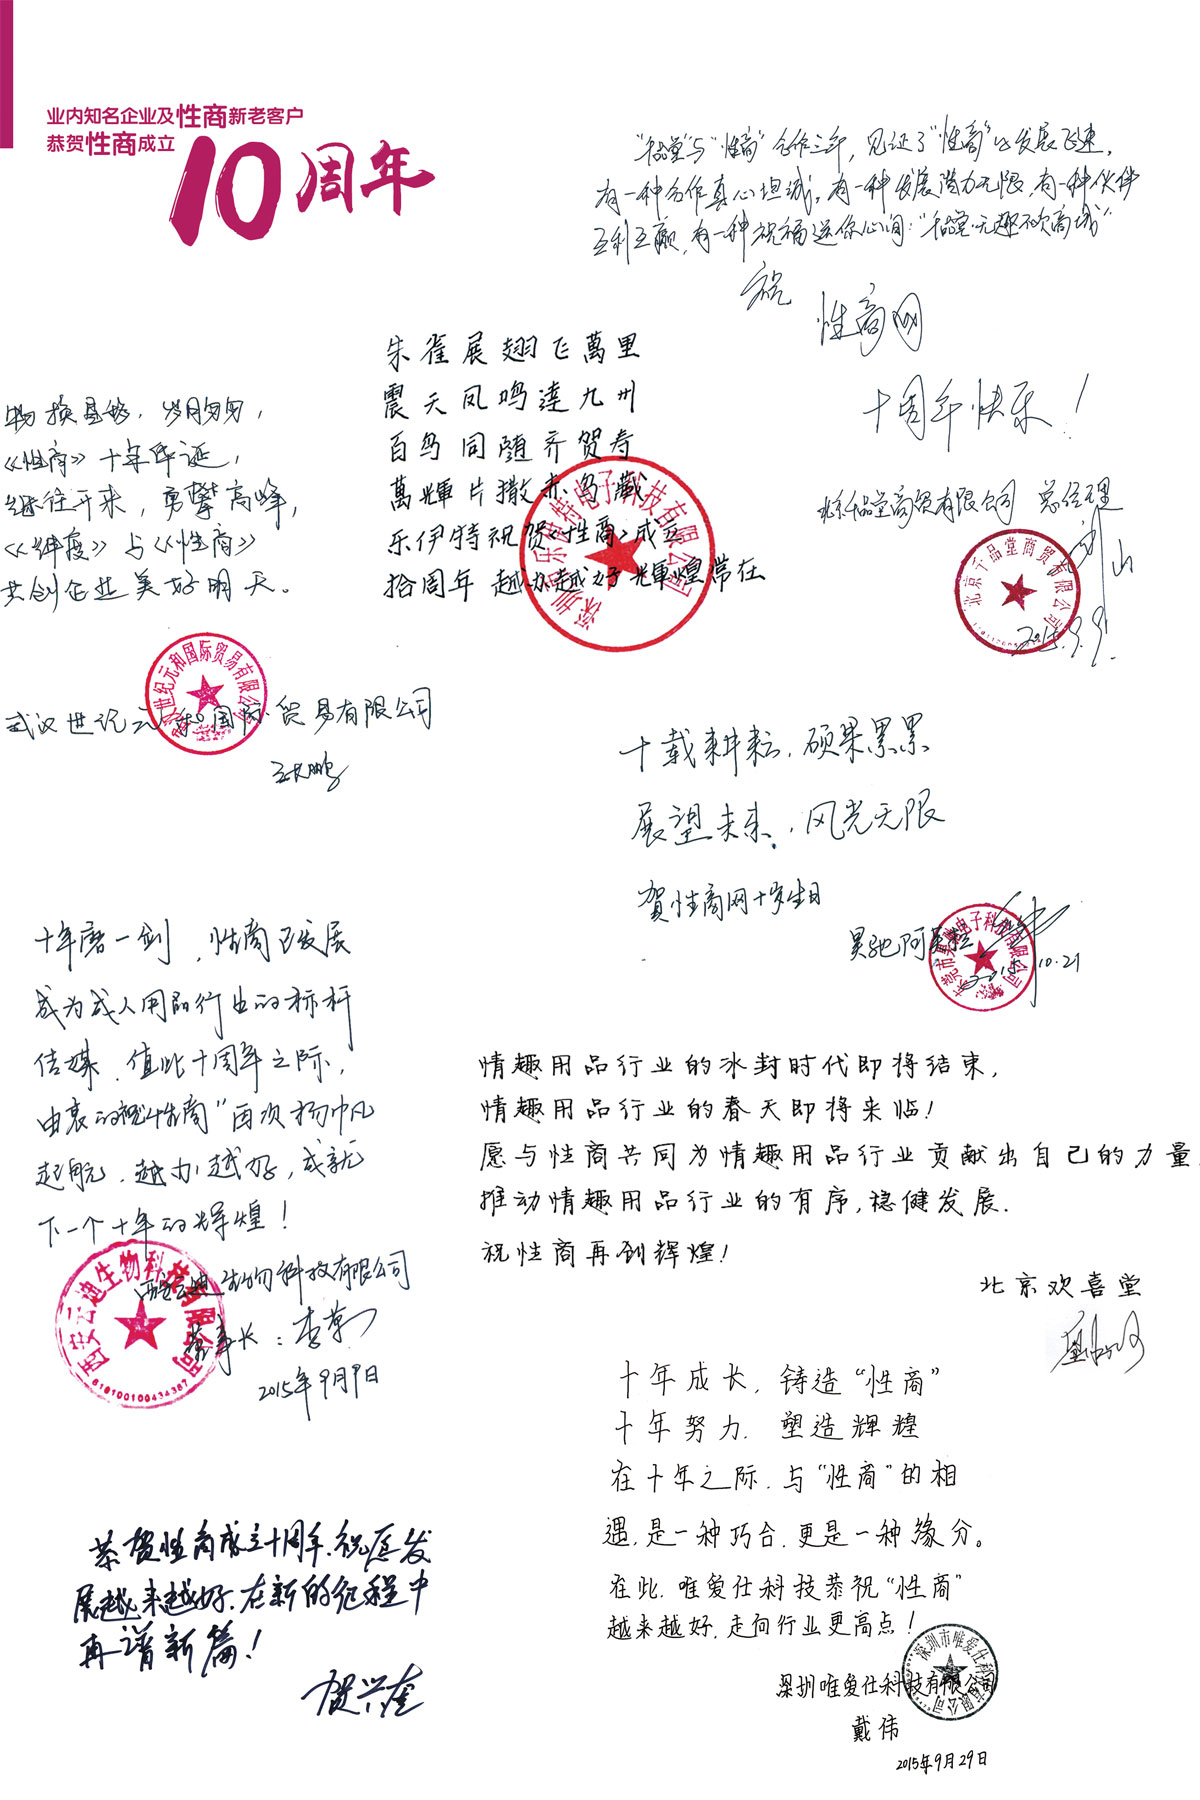 业内知名企业及性商新老客户
恭贺性商成立
10周年
"千品堂"与"性商"合作三年，见证了"性商"的发展飞速，
有一种合作真心坦诚，有一种发展潜力无限，有一种伙伴
互利互赢，有一种祝福送你心间："千品堂·无趣不欢商城"
祝
性商网
十周年快乐！
北京千品堂商贸有限公司 总经理
北京千品堂商贸有限公司
2015.9.9
朱雀展翅飞萬里
震天凤鸣達九州
百鸟同随齐贺寿
萬輝片撒赤岛藏
乐伊特祝贺《性商》成立
拾周年 越办越好 輝煌常在
深圳市乐伊特电子科技有限公司
物换星移，岁月匆匆，
《性商》十年华诞，
继往开来，勇攀高峰，
《纬度》与《性商》
共创企业美好明天。
武汉世纪元和国际贸易有限公司
武汉世纪元和国际贸易有限公司
十载耕耘，硕果累累
展望未来，风光无限
贺性商网十岁生日
昊驰阿芙拉
东莞市昊驰电子科技有限公司
2015.10.21
十年磨一剑，性商已发展
成为成人用品行业的标杆
传媒，值此十周年之际，
由衷的祝"性商"再次扬帆
起航，越办越好，成就
下一个十年的辉煌！
西安云迪生物科技有限公司
董事长：李
西安云迪生物科技有限公司
610100100434367
2015年9月9日
情趣用品行业的冰封时代即将结束，
情趣用品行业的春天即将来临！
愿与性商共同为情趣用品行业贡献出自己的力量，
推动情趣用品行业的有序，稳健发展．
祝性商再创辉煌！
北京欢喜堂
十年成长，铸造"性商"
十年努力，塑造辉煌
在十年之际，与"性商"的相
遇，是一种巧合，更是一种缘分。
在此，唯爱仕科技恭祝"性商"
越来越好，走向行业更高点！
深圳唯爱仕科技有限公司
深圳市唯爱仕科技有限公司
戴伟
2015年9月29日
恭贺性商成立十周年，祝愿发
展越来越好，在新的征程中
再谱新篇！
贺兴奎